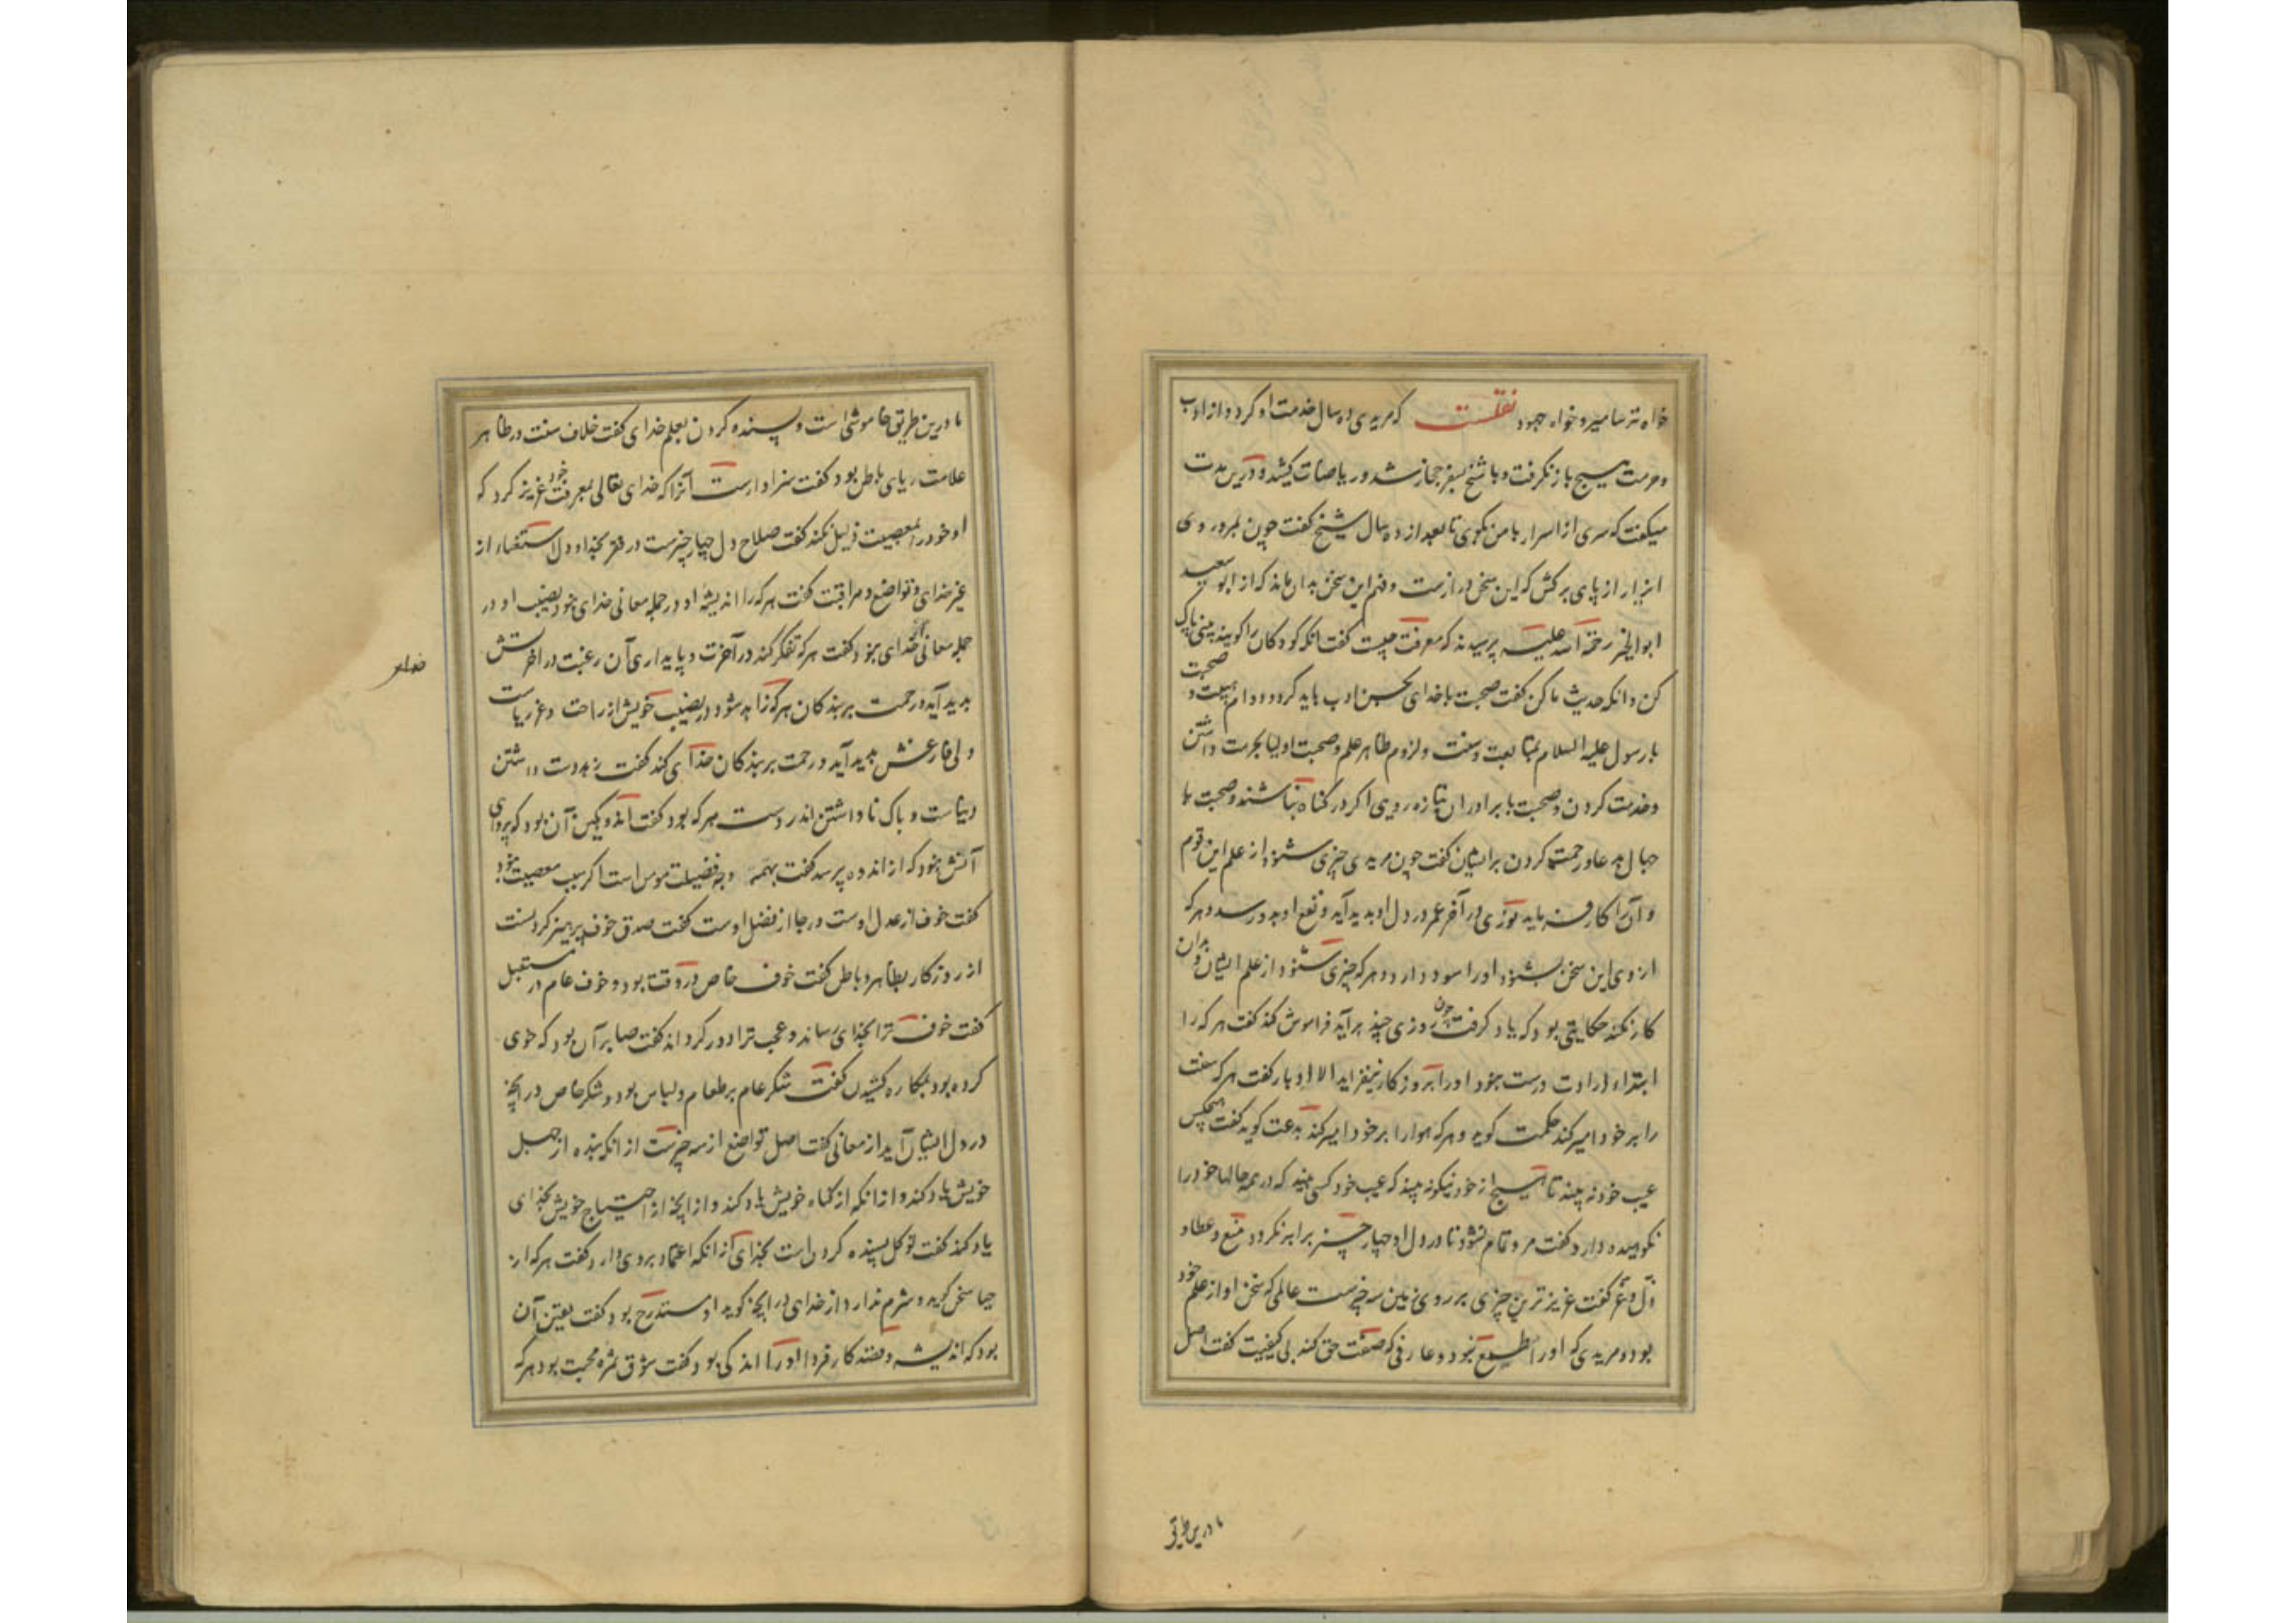 خواه ترسا میر و خواه جهود نقلست که مریدی ده سال خدمت او کرد و از ادب
و حرمت هیچ باز نگرفت و با شیخ بسفر حجاز شد و ریاضات کشید و درین مدت
میگفت که سری از اسرار با من بگوی تا بعد از ده سال شیخ گفت چون بمبرز روی
ایزار از پای برکش که این سخن دراز ست و فهم این سخن بدان ماند که از ابو سعید
ابو الخیر رحمة الله علیه پرسیدند که معرفت چیست گفت انکه کودکان را کویند بینی پاک
کن و انکه حدیث ما کن گفت صحبت با خدای بحسن ادب باید کرد و دوام هیبت و صحبت
با رسول علیه السلام بمتابعت و سنت و لزوم ظاهر علم و صحبت اولیا بحرمت داشتن
و خدمت کردن و صحبت با برادران بتازه رویی اگر در کناه نباشند و صحبت با
جهال بدعا و رحمت کردن بر ایشان گفت چون مریدی چیزی شنود از علم این قوم
و آنرا کار فرماید نوری در آخر عمر در دل او بدید آید و نفع او بدو رسد و هر که
از وی این سخن بشنود او را سود دارد و هر که چیزی شنود از علم ایشان و بدان
کار نکند حکایتی بود که یاد کرفت چون روزی چند بر آید فراموش کند گفت هر که را
ابتداء ارادت درست نبود او را بروزکار نیفزاید الا ادبار گفت هر که سنت
را بر خود امیر کند حکمت کوید و هر که هوا را بر خود امیر کند بدعت کوید گفت هیچکس
عیب خود نه بیند تا هیچ از خود نیکو نه بیند که عیب خود کسی بیند که در همه حالها خود را
نکوهیده دارد گفت مرد تمام نشود تا در دل او چهار چیز برابر نکردد منع و عطا و
ذل و عز گفت عزیز ترین چیزی بر روی زمین سه چیز ست عالمی که سخن او از علم خود
بود و مریدی که او را طمع نبود و عارفی که صفت حق کند بی کیفیت گفت اصل
ما درین طریق
ما درین طریق خاموشی است و بسنده کردن بعلم خدای گفت خلاف سنت در ظاهر
علامت ریای باطن بود گفت سزاوارست آنرا که خدای تعالی بمعرفت خود عزیز کرد که
او خود را بمعصیت ذلیل نکند گفت صلاح دل چهار چیز ست در فقر بخدا و دل استغناء از
غیر خدای و تواضع و مراقبت گفت هر که را اندیشه او در جمله معانی خدای نبود نصیب او در
جمله معانی از خدای نبود گفت هر که تفکر کند در آخرت و پایداری آن رغبت در اخرتش
خدای
بدید آید و رحمت بر بندکان هر که زاهد شود در نصیب خویش از راحت و عز ریاست
دلی فارغش پدید آید و رحمت بر بندکان خدای کند گفت زهد دست داشتن
دنیاست و باک نا داشتن اندر دست هر که بود گفت اندوهکین آن بود که پروای
آتش نبود که از اندوه پرسد گفت بهمه وجه فضیلت مومن است اگر سبب معصیت نبود
گفت خوف از عدل اوست و رجا از فضل اوست گفت صدق خوف پرهیز کردنست
از روزکار بظاهر و باطن گفت خوف خاص در وقت بود و خوف عام در مستقبل
گفت خوف ترا بخدای رساند و عجب ترا دور کرداند گفت صابر آن بود که خوی
کرده بود بمکاره کشیدن گفت شکر عام بر طعام و لباس بود و شکر خاص در آنچه
در دل ایشان آید از معانی گفت اصل تواضع از سه چیز ست از انکه بنده از جهل
خویش یاد کند و از انکه از کناه خویش یاد کند و از آنچه از احتیاج خویش بخدای
یاد کند گفت توکل بسنده کردن است بخدای از انکه اعتماد بر وی دارد گفت هر که از
حیا سخن کوید و شرم ندارد از خدای در آنچه کوید او مستدرج بود گفت یقین آن
بود که اندیشه و قصد کار فردا او را اندکی بود گفت شوق ثمره محبت بود هر که